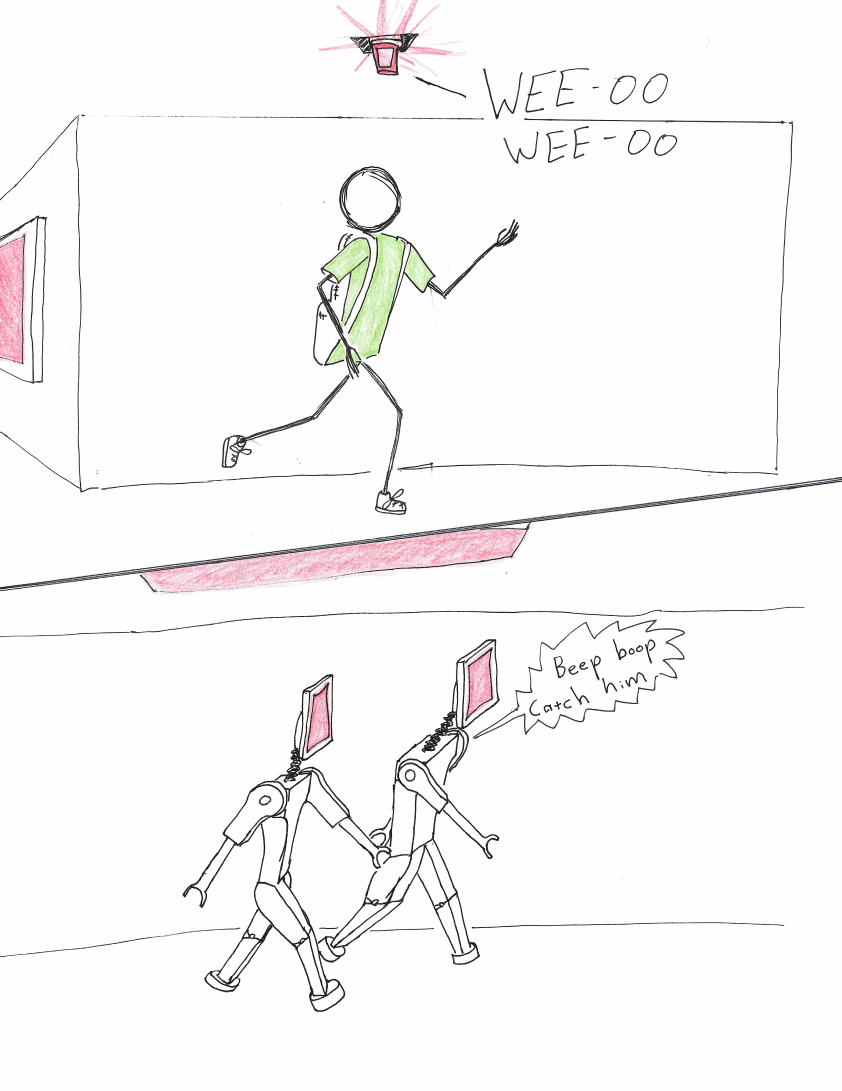 WEE-OO
WEE-OO
Beep boop
Catch him